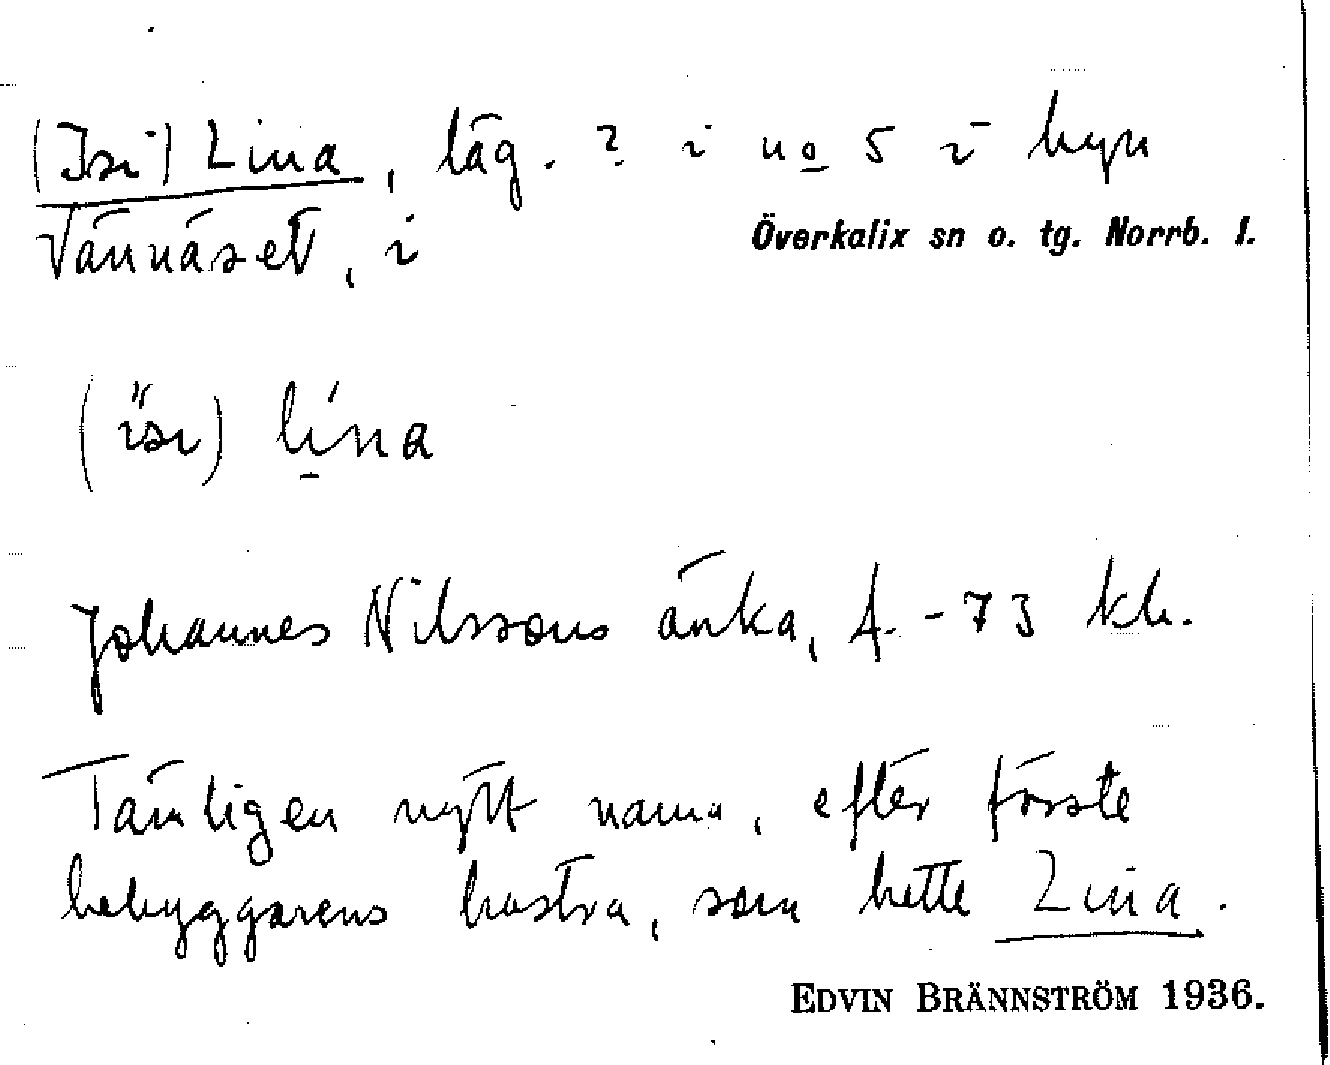 (Isi) Lina, läg. ? i no 5 i byn
Vännäset, i
Överkalix sn o. tg. Norrb. l.
(ïsi) lína
Johannes Nilssons änka, f. -73 kb.
Tämligen nytt namn, efter förste
bebyggarens hustru, som hette Lina.
EDVIN BRÄNNSTRÖM 1936.